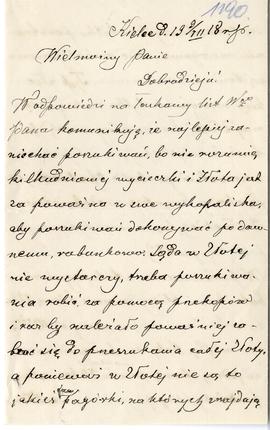 1190.
Kielce d. 19 9/III 18
Wielmożny Panie
Dobrodzieju
W odpowiedzi na łaskawy list Wgo
Pana komunikuję, że najlepiej za-
niechać poszukiwań, bo nie rozumię
kilkudniowej wycieczki i Złota jest
za poważna w swe wykopaliska,
aby poszukiwań dokonywać po daw-
nemu, rabunkowo. Sąda w Złotej
nie wystarczy, trzeba poszukiwa-
nia robić za pomocą przekopów
i raz by należało poważniej za-
brać się do przeszukania całej Złoty,
a ponieważ w Złotej nie są to
jakieś pagórki, na których znajdują